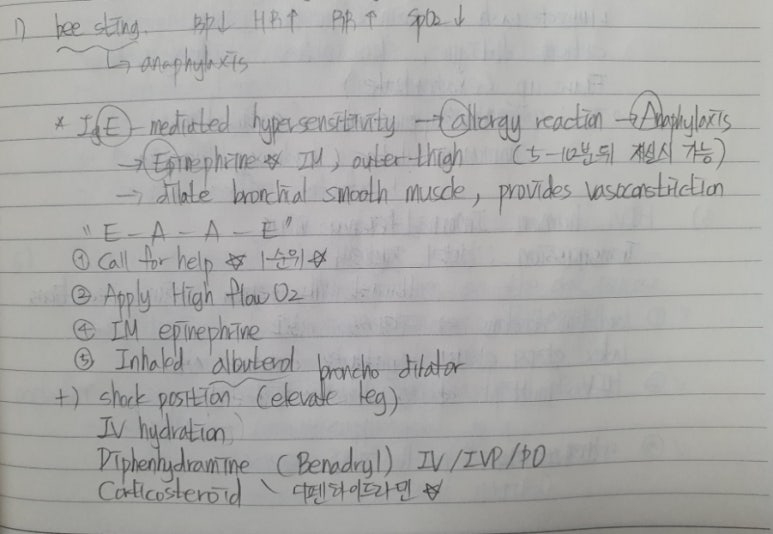 1) bee sting. BP↓ HR↑ RR↑ SpO2↓
↳ anaphylaxis
* IgE-mediated hypersensitivity → allergy reaction → Anaphylaxis
→ Epinephrine ☆ IM, outer-thigh (5-10분뒤 재실시 가능)
→ dilate bronchial smooth muscle, provides vasoconstriction
"E-A-A-E"
① Call for help ☆ 1순위 ☆
② Apply High flow O2
④ IM epinephine
⑤ Inhaled albuterol broncho dilator
+) shock position (elevate leg)
IV hydration
Diphenhydramine (Benadryl) IV/IVP/PO
Corticosteroid \ 디펜하이드라민 ☆